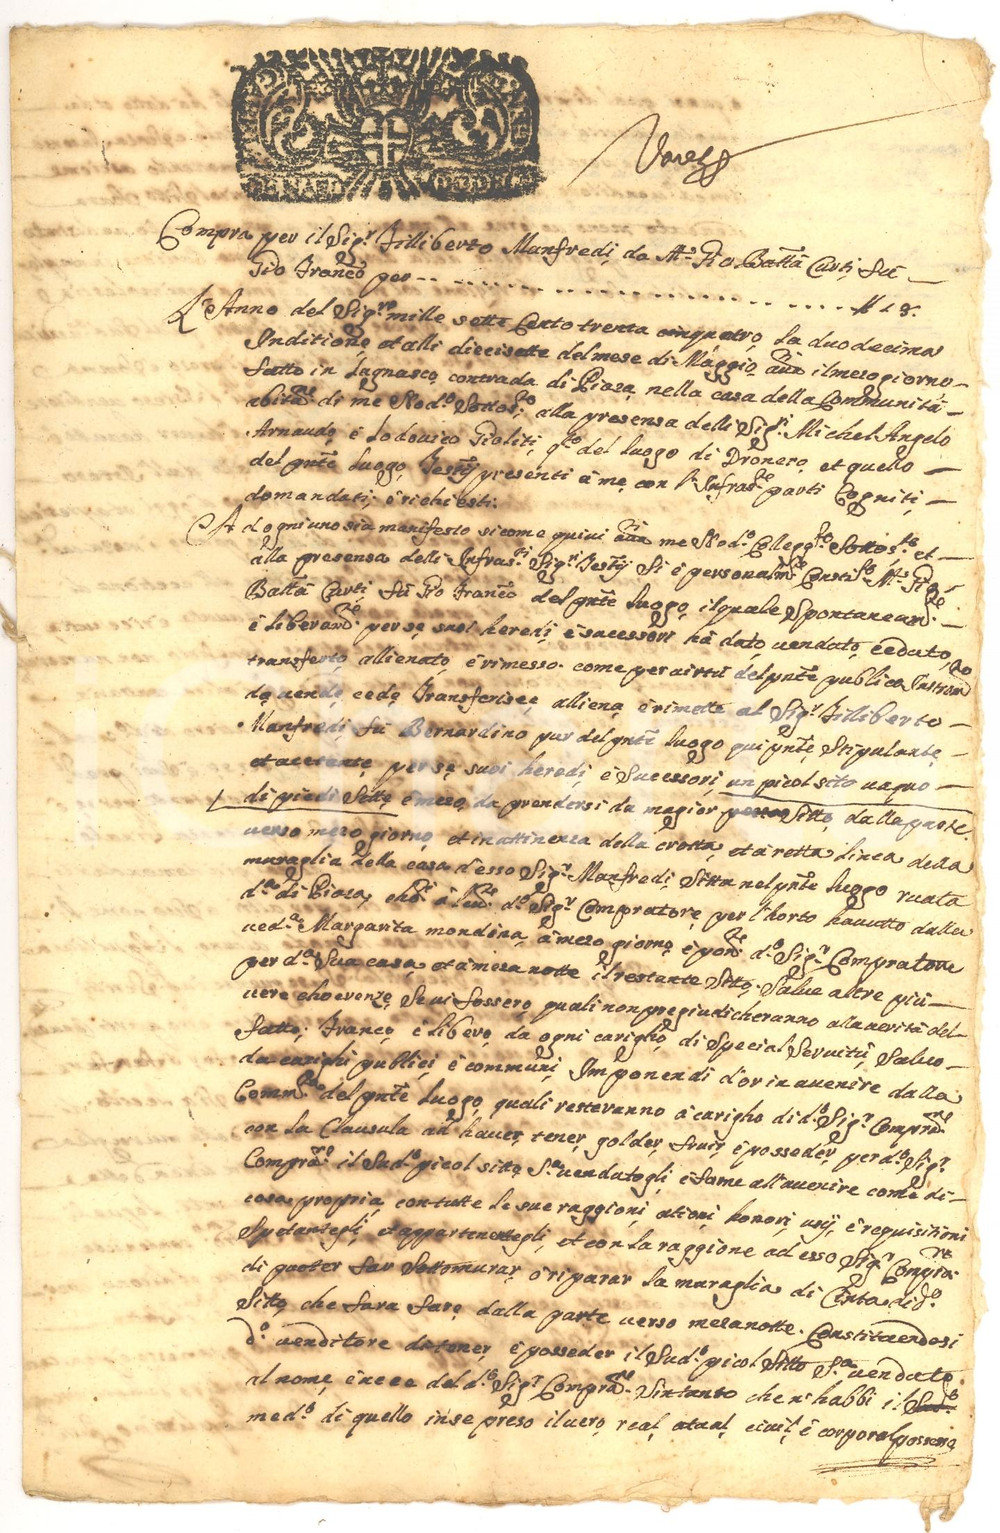 Compra per il Sig.r Filliberto Manfredi, da M.o Gio. Batt.a Curti, fu
Gio Franc.o per
L'Anno del Sig.re mille sette Cento trenta cinquatro, la duodecima
Inditione, et alli diecisette del mese di Maggio, il mezogiorno
fatto in Lagnasco, contrada di Piaza, nella casa della Communità
di me Nod.o Sottos.to, alla presensa delli Sig.ri Michel Angelo
Arnaudo, è Lodouico Gioliti, q.to del luogo di Dronero, et quello
del pnte luogo, Testij presenti à me, con l'Infras.te parti Cogniti,
domandati, è richiesti.
Ad ogniuno sia manifesto si come quiui me Nod.o Collegg.to Sottos.to et
alla presensa delli Infras.ti Sig.ri Testij Si è personalm.te Constit.to M.o Gio
Batt.a Curti, fu Gio Franc.o del pnte luogo, il quale Spontaneam.te
è liberam.te per se, suoi heredi, è sucessori hà dato, uendato, ceduto,
transferto, allienato, è rimesso come per uirtù del pnte publico Instrum.to
dà, uende, cede, Transferisce, alliena, è rimette al Sig.r Filliberto
Manfredi, fu Bernardino pur del pnte luogo qui pnte, Stipulante,
et acetante, per se, suoi heredi, è Sucessori, un picol sito uaquo
di piedi Sette, è mezo, da prendersi da magior Sitto, dalla parte
uerso mezo giorno, et in attinenza della crotta, et à retta linea della
muraglia della casa d'esso Sig.r Manfredi, Sitta nel pnte luogo ruata
d.ta di Piaza, d.o Sig.r Compratore, per l'horto hauuto dalla
ued.a Margarita mondina, à mezo giorno, è d.o Sig.r Compratore
per d.a Sua casa, et à meza notte il restante Sito, Salue altre più
uere choerenze, Se ui fossero, quali non pregiudicheranno alla uerità del
fatto, Franco, è libero, da ogni caricho, di Special Seruitù, Saluo
da carighi publici, è communi, Imponendi d'or in auenire dalla
Comm.tà del pnte luogo, quali resteranno à caricho di d.o Sig.r Compra.re
con la Clausula ad hauer, tener, golder, fruir, è posseder, per d.o Sig.r
Compra.re il Sud.o picol sitto, S.a uendutogli, è farne all'auenire come di
cosa propria, con tutte le sue raggioni, ationi, honori, usij, è requisitioni
Spetantegli, et appartenentegli, et con la raggione ad esso Sig.r Compra.re
di poter far Sottomurar, ò riparar la muraglia di Cinta di d.o
Sitto, che fara fare, dalla parte uerso meza notte. Constituendosi
d.o uenditore da tener, è posseder il Sud.o picol Sitto S.a uenduto
al nome, è uece del d.o Sig.r Compra.re Sin tanto che n'habbi il
med.o di quello inse preso il uero, real, atual, ciuil, è corporal possesso,